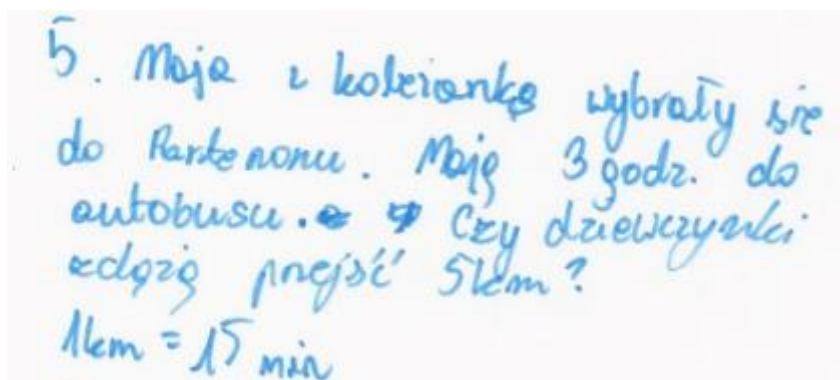 5. Maja z koleżanką wybrały się
do Partenonu. Mają 3 godz. do
autobusu. Czy dziewczynki
zdążą przejść 5km?
1km = 15 min